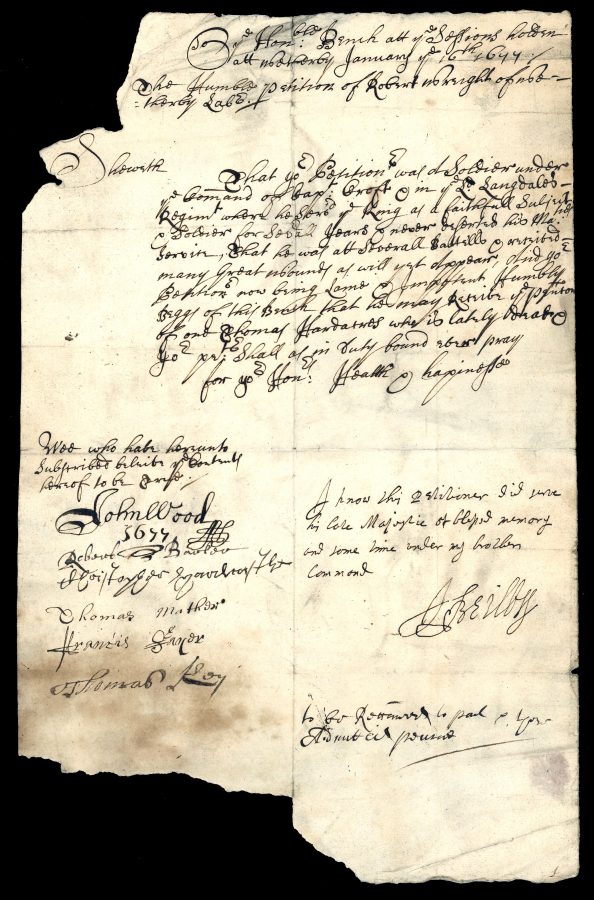 To ye Honble: Bench att ye Sessions holden
att Wetherby January ye 16th 1677
The Humble Petition of Robert Wreight of We-
:therby Labr.
Sheweth
That yor Petitionr was a Soldier under
ye Command of Capt. Croft & in ye Ld. Langdales-
Regimt where he serd ye King as a faithfull Subject
& Soldier for Sevall Years & never deserted his Maties
Service, That he was att Severall Battells & receibed
many Great wounds as will yet appear, And yor
Petitionr now being Lame & impotent Humbly
Beggs of this Bench that he may Receibe ye Pention
of one Thomas Hardacres who is lately dead &
Yor petr: Shall as in Duty bound ever pray
for yor Honrs Health & hapinesse
Wee who habe hereunto
Subscribed beleibe ye Contents
hereof to be true
John Wood
1677
Robert
Christopher
Thomas Mather
Francis
Thomas Key
I know this Petitioner did serve
his late Majestie of blessed memory
and some time under my brothers
Command
to be